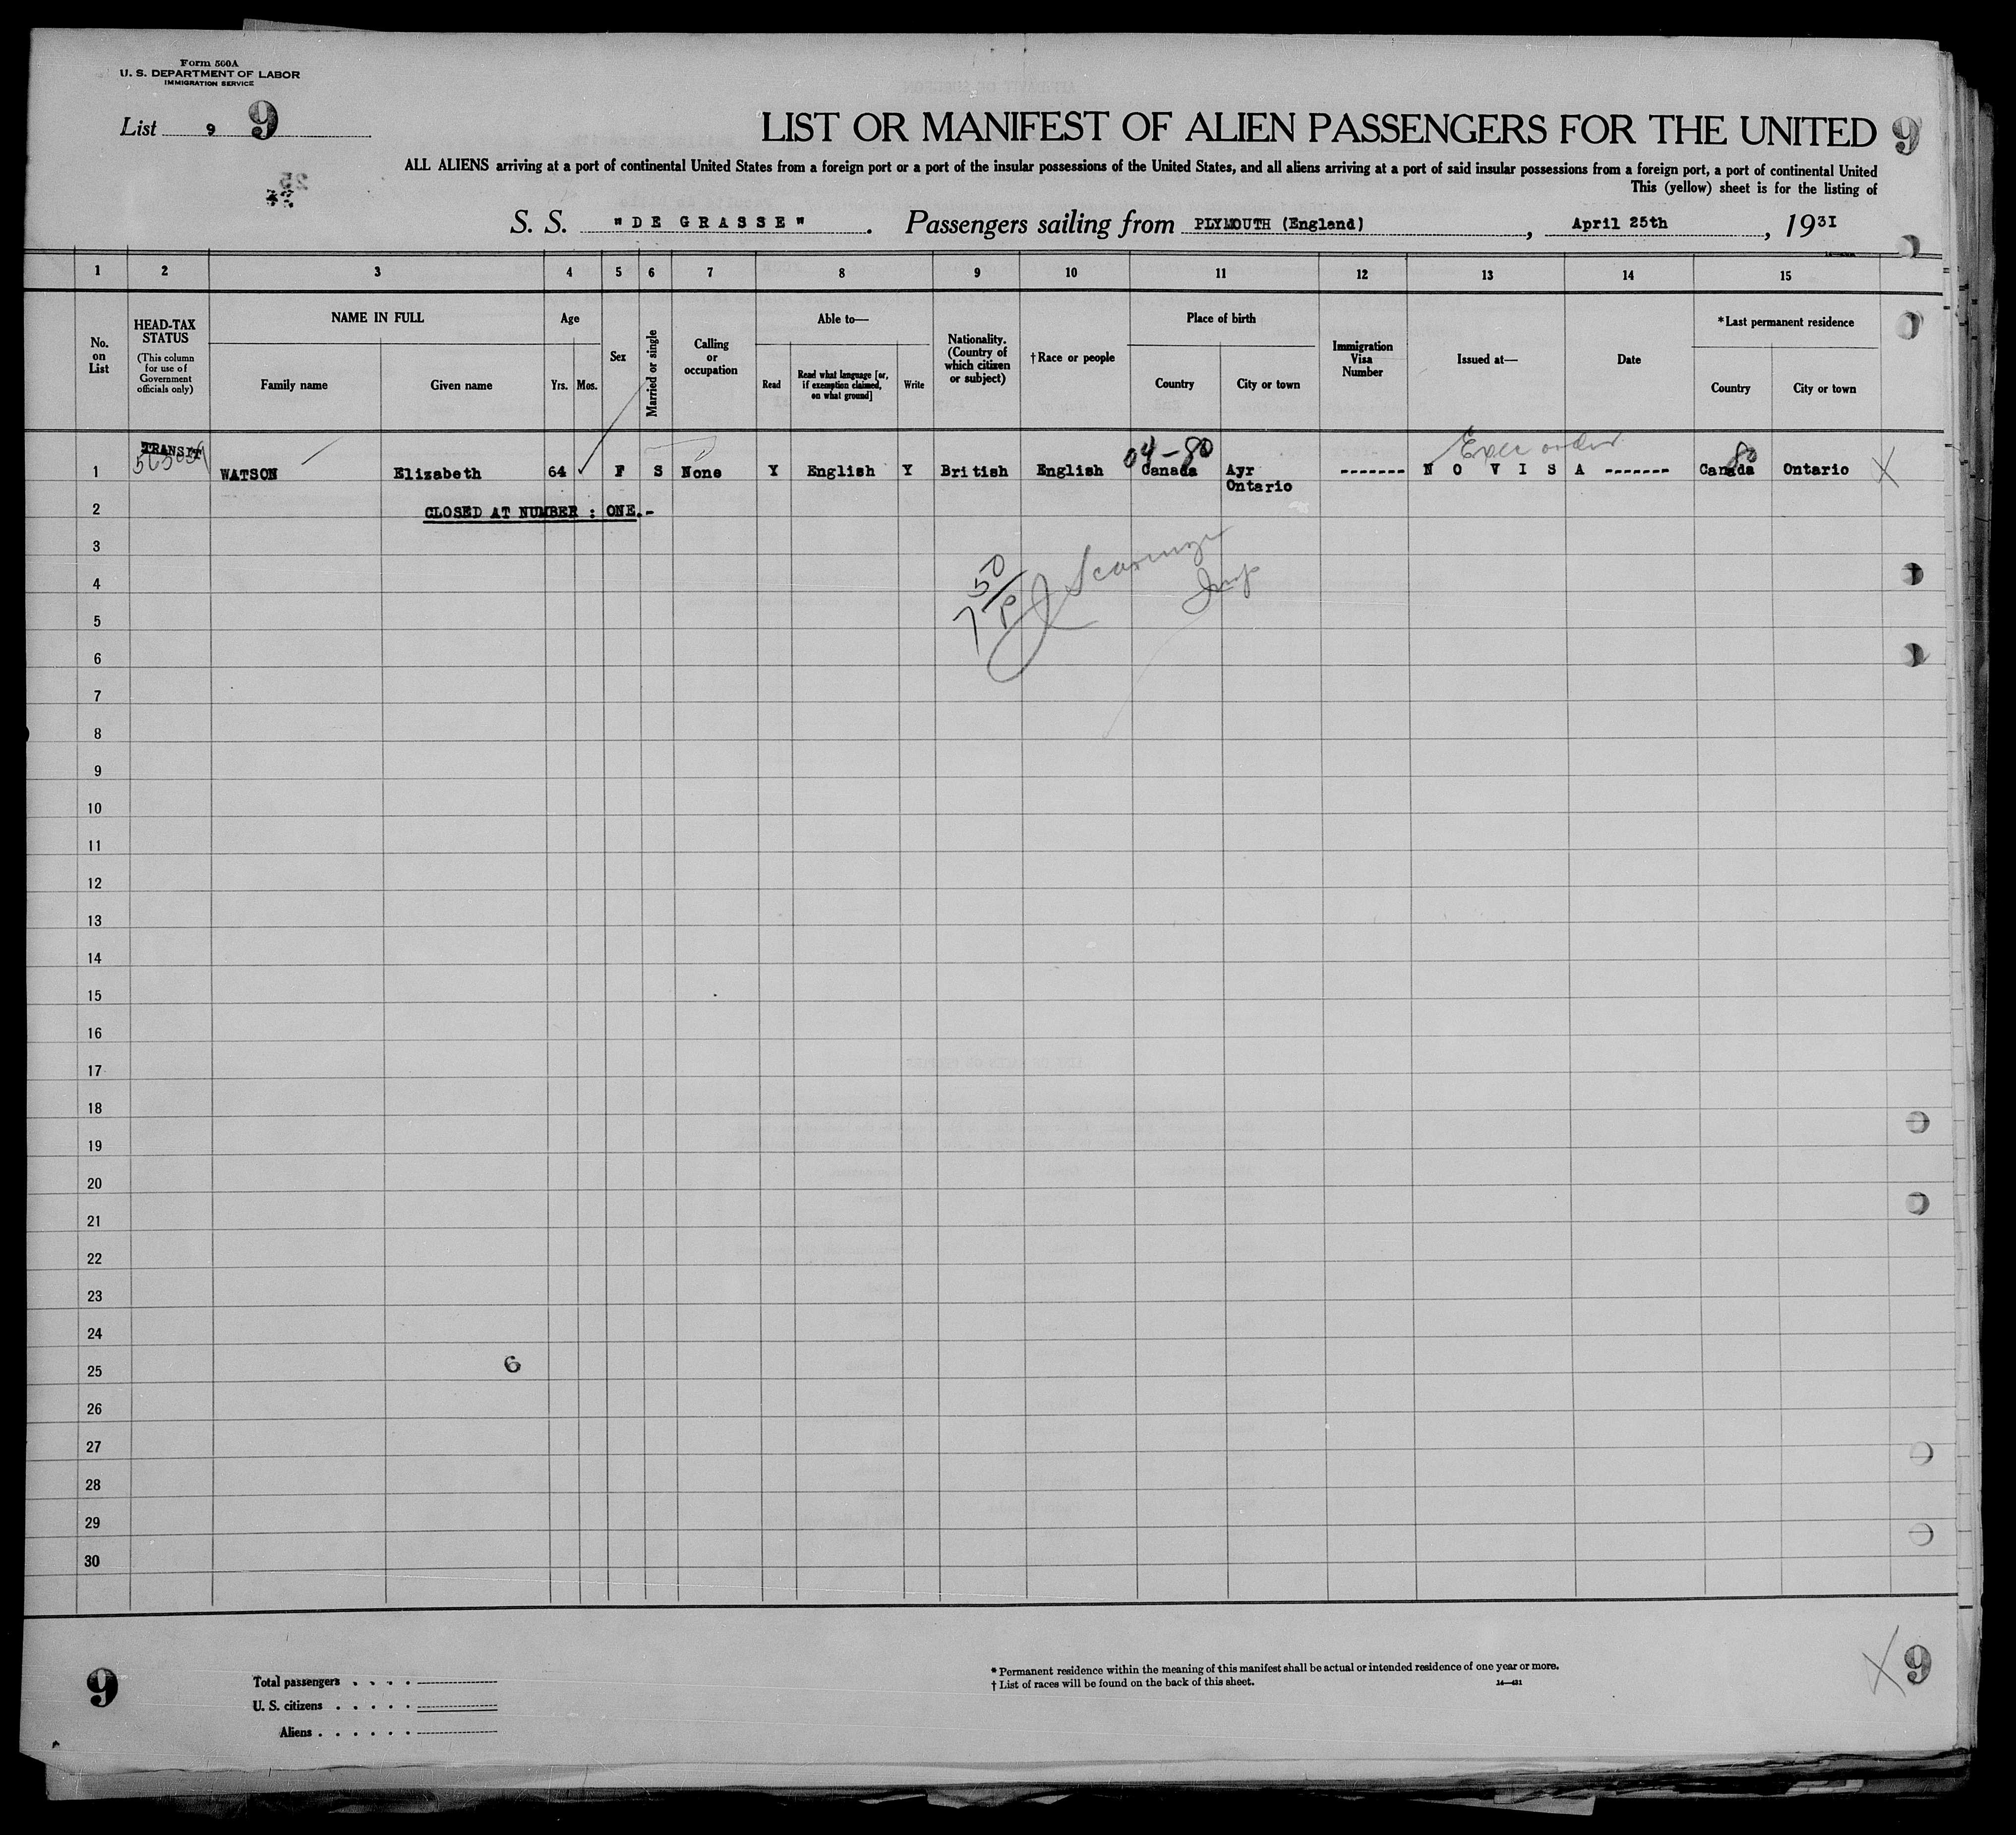 Form 500A
U. S. DEPARTMENT OF LABOR
IMMIGRATION SERVICE
List 9 9
LIST OR MANIFEST OF ALIEN PASSENGERS FOR THE UNITED 9
ALL ALIENS arriving at a port of continental United States from a foreign port or a port of the insular possessions of the United States, and all aliens arriving at a port of said insular possessions from a foreign port, a port of continental United
This (yellow) sheet is for the listing of
S. S. "DE GRASSE". Passengers sailing from PLYMOUTH (England), April 25th, 1931
1 2 3 4 5 6 7 8 9 10 11 12 13 14 15
No. on List
HEAD-TAX STATUS
(This column for use of Government officials only)
NAME IN FULL
Family name
Given name
Age
Yrs.
Mos.
Sex
Married or single
Calling or occupation
Able to—
Read
Read what language [or, if exemption claimed, on what ground]
Write
Nationality. (Country of which citizen or subject)
†Race or people
Place of birth
Country
City or town
Immigration Visa Number
Issued at—
Date
*Last permanent residence
Country
City or town
TRANSIT
04-80
Exec order
80
1 WATSON Elizabeth 64 ✓ F S None Y English Y British English Canada Ayr Ontario ------- N O V I S A ------- Canada Ontario X
2 CLOSED AT NUMBER : ONE.-
3
4
5
6
7
8
9
10
11
12
13
14
15
16
17
18
19
20
21
22
23
24
25 6
26
27
28
29
30
9
Total passengers . . . .
U. S. citizens . . . . .
Aliens . . . . . .
* Permanent residence within the meaning of this manifest shall be actual or intended residence of one year or more.
† List of races will be found on the back of this sheet.
X 9